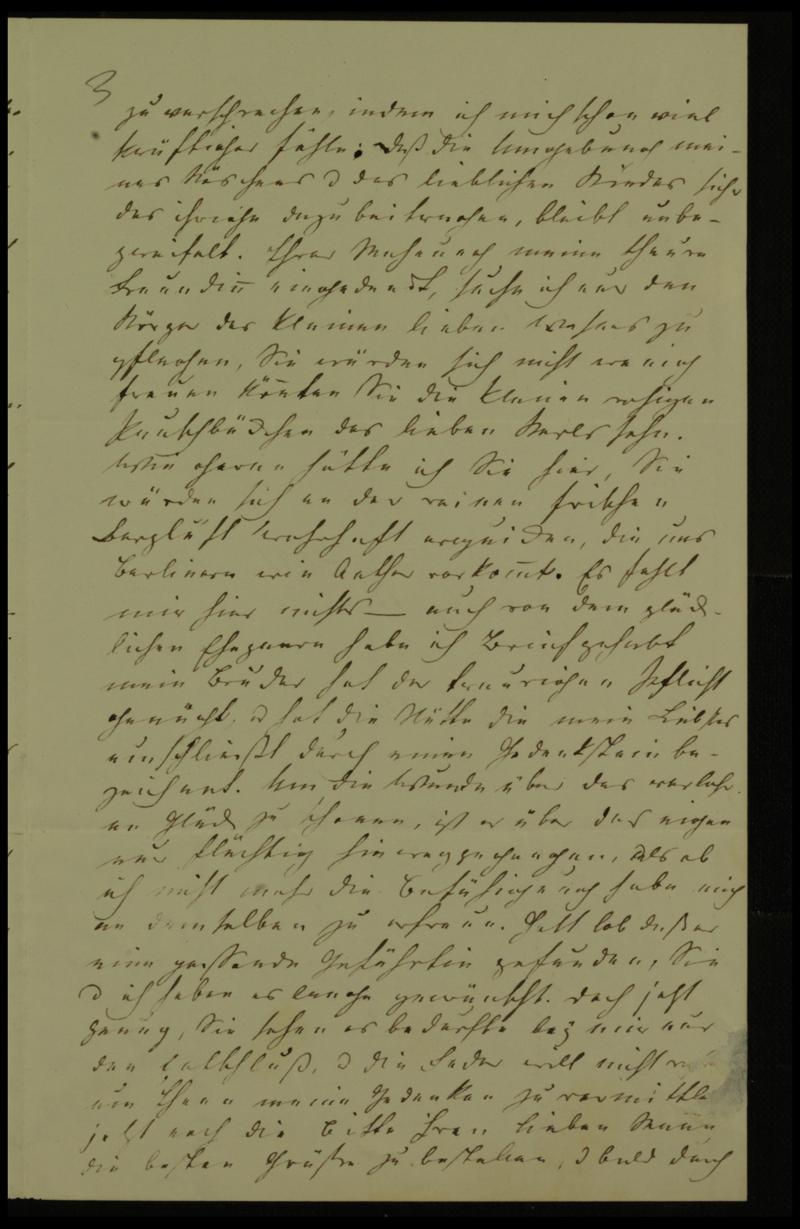 3
zu versprechen, indem ich mich schon viel
kräftiger fühle; daß die Umgebung mei-
nes Röschens & des lieblichen Kindes sich
das ihrige dazu beitragen, bleibt unbe-
zweifelt. Ihrer Mahnung meine theure
Freundin eingedenk, suche ich nur den
Körper des kleinen lieben Wesens zu
pflegen, Sie würden sich nicht wenig
freuen könten Sie die kleinen rosigen
Pausbäckchen des lieben Karls sehn.
Wie gerne hätte ich Sie hier, Sie
würden sich an der reinen frischen
Bergluft wahrhaft erquicken, die uns
Berlinern wie Aether vorkomt. Es fehlt
mir hier nichts — auch von dem glück-
lichen Ehepaare habe ich Brief gehabt
mein Bruder hat der traurigen Pflicht
genügt, & hat die Stätte die mein Liebstes
umschließt durch einen Gedenkstein be-
zeichnet. Um die Wunde über das verlohr-
ne Glück zu schonen, ist er über das eigen
nur flüchtig hinweggegangen, als ob
ich nicht mehr die Befähigung habe mich
an demselben zu erfreun. Gott lob daß er
eine passende Gefährtin gefunden, Sie
& ich haben es lange gewünscht. Doch jetzt
genug, Sie sehen es bedurfte bey mir nur
den Entschluß, & die Feder will nicht
um Ihnen meine Gedanken zu vermittle
jetzt noch die Bitte Ihren lieben Mann
die besten Grüße zu bestellen, & bald durch